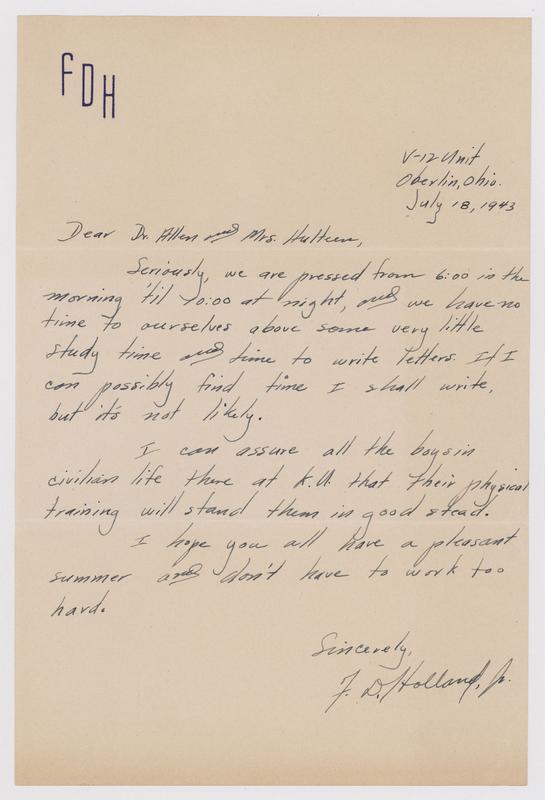 FDH
V-12 Unit
Oberlin, Ohio.
July 18, 1943
Dear Dr. Allen and Mrs. Hulteen,
Seriously, we are pressed from 6:00 in the
morning 'til 10:00 at night, and we have no
time to ourselves above some very little
study time and time to write letters. If I
can possibly find time I shall write,
but it's not likely.
I can assure all the boys in
civilian life there at K.U. that their physical
training will stand them in good stead.
I hope you all have a pleasant
summer and don't have to work too
hard.
Sincerely,
F. D. Holland, Jr.